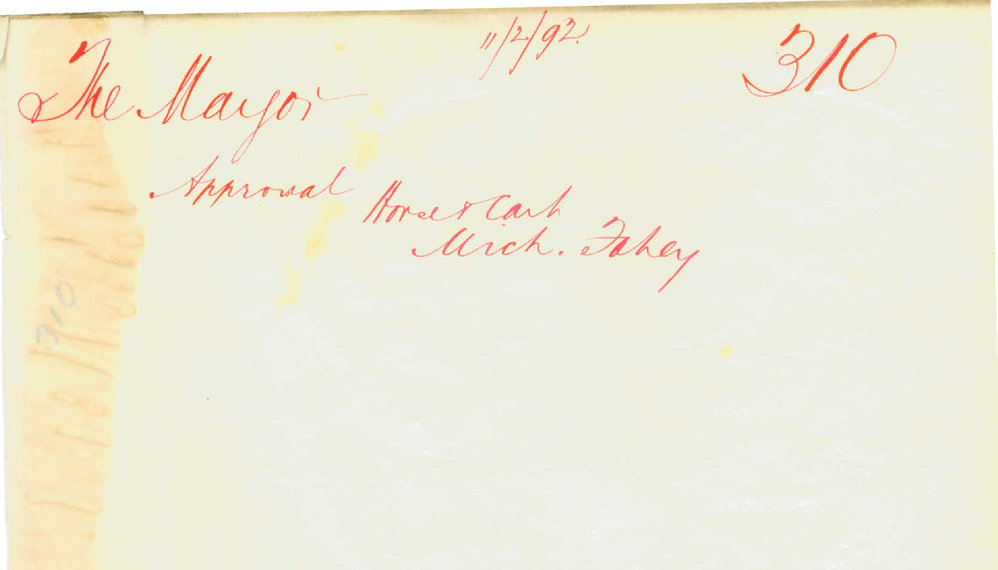 11/2/92.
310
The Mayor
Approval
Horse & Cart
Mich. Fahey
310